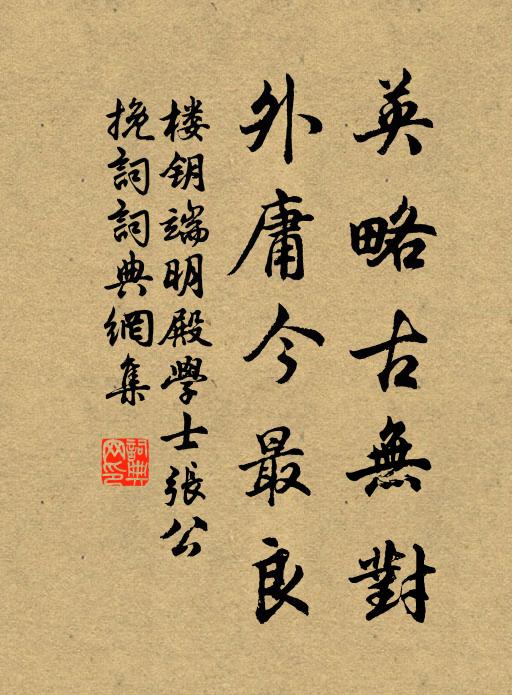 英略古無對
外庸今最良
楼钥端明殿學士張公
挽詞詞典網集
詞典
网印